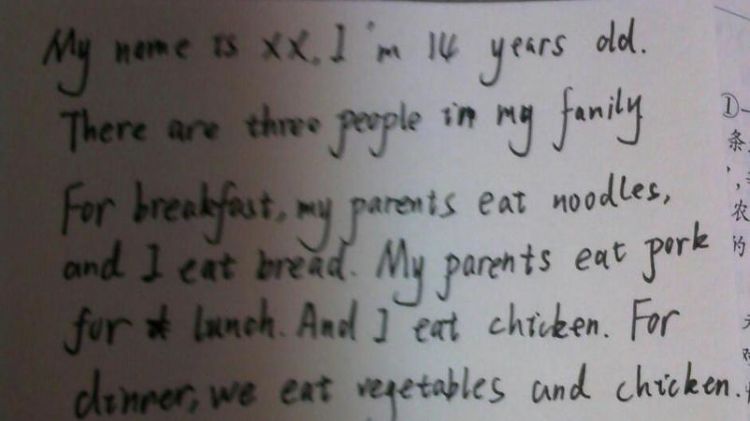 My name is XX. I'm 14 years old.
There are three people in my family
For breakfast, my parents eat noodles,
and I eat bread. My parents eat pork
for lunch. And I eat chicken. For
dinner, we eat vegetables and chicken.
①
条
农
的